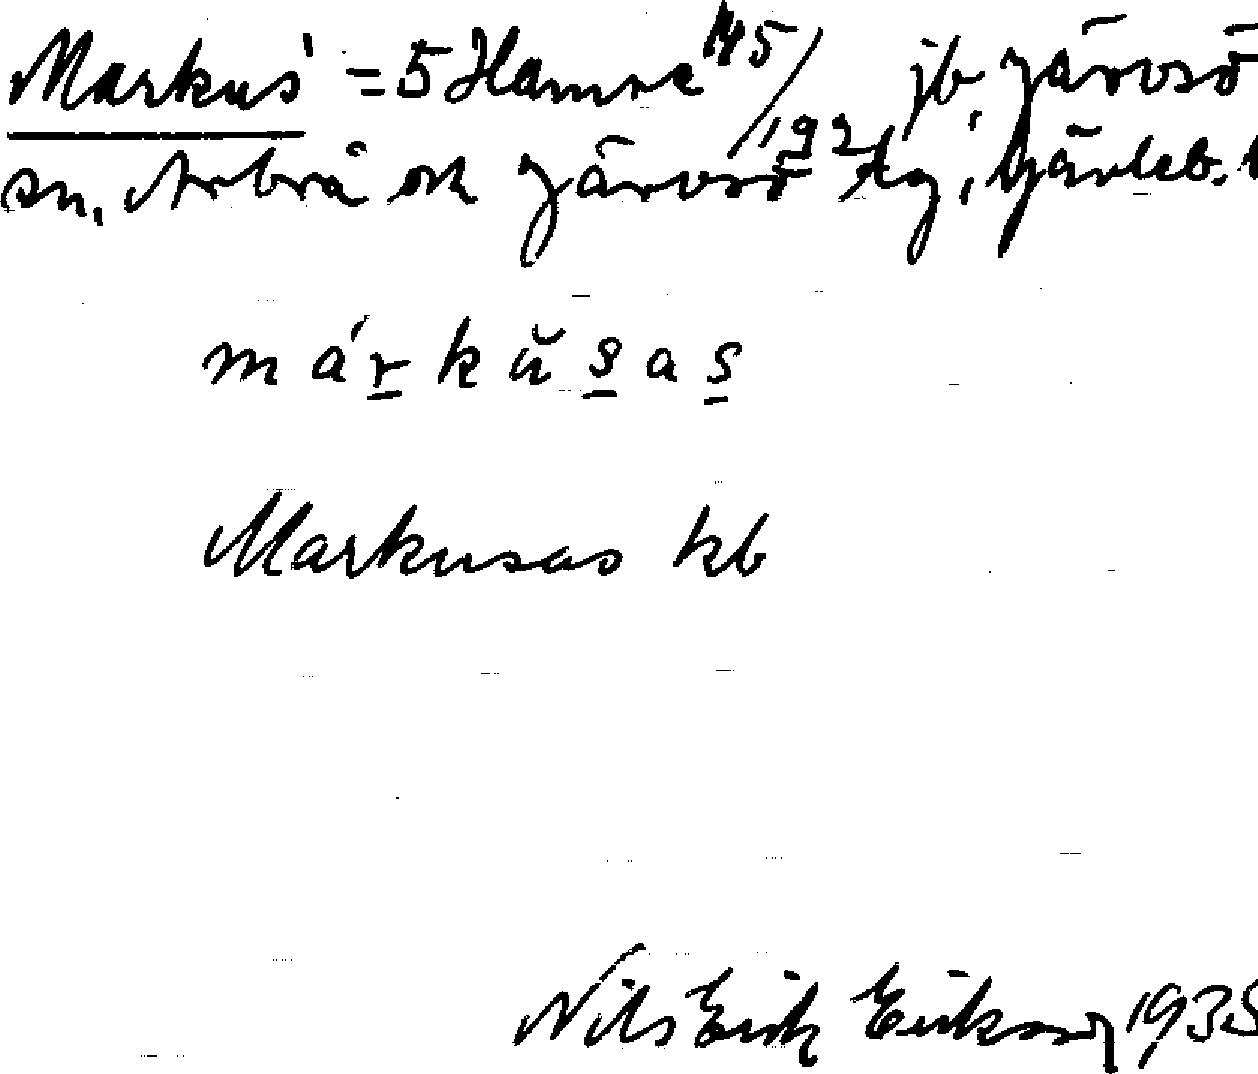 Markus' = 5 Hamre 145/192 jb, Järvsö
sn, Arbrå och Järvsö tg, Gävleb. l
márkŭsas
Markusas kb
Nils Erik Eriksson 1935